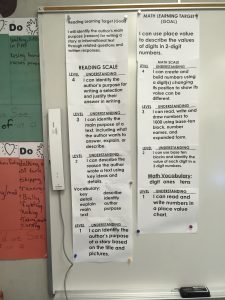 Do
of
Do
Reading Learning Target (Goal)
I will identify the author's main
purpose (reason) for writing a
story or informational text
through text-related questions
and written responses.
READING SCALE
LEVEL UNDERSTANDING
4 I can identify the
author's purpose for
writing a selection
and justify their
answer in writing.
LEVEL UNDERSTANDING
3 I can identify the
main purpose of a
text, including what
the author wants
to answer, explain, or
describe.
LEVEL UNDERSTANDING
2 I can describe the
reason the author
wrote a text using
key ideas and
details.
Vocabulary:
key describe
detail identify
explain author
main purpose
text
LEVEL UNDERSTANDING
1 I can identify the
author's purpose
of a story based
on the title and
pictures.
MATH LEARNING TARGET
(GOAL)
I can use place value
to describe the values
of digits in 2-digit
numbers.
MATH SCALE
LEVEL UNDERSTANDING
4 I can create and
build numbers using
a digit(s) changing
its position to show
its value can be
different.
LEVEL UNDERSTANDING
3 I can read, write and
draw numbers to
1000 using base-ten
block, number
names, and
expanded form.
LEVEL UNDERSTANDING
2 I can use base ten
blocks and identify the
value of each digit in a
2 digit numbers.
Math Vocabulary:
digit ones tens
LEVEL UNDERSTANDING
1 I can read and
write numbers in
a place value
chart.